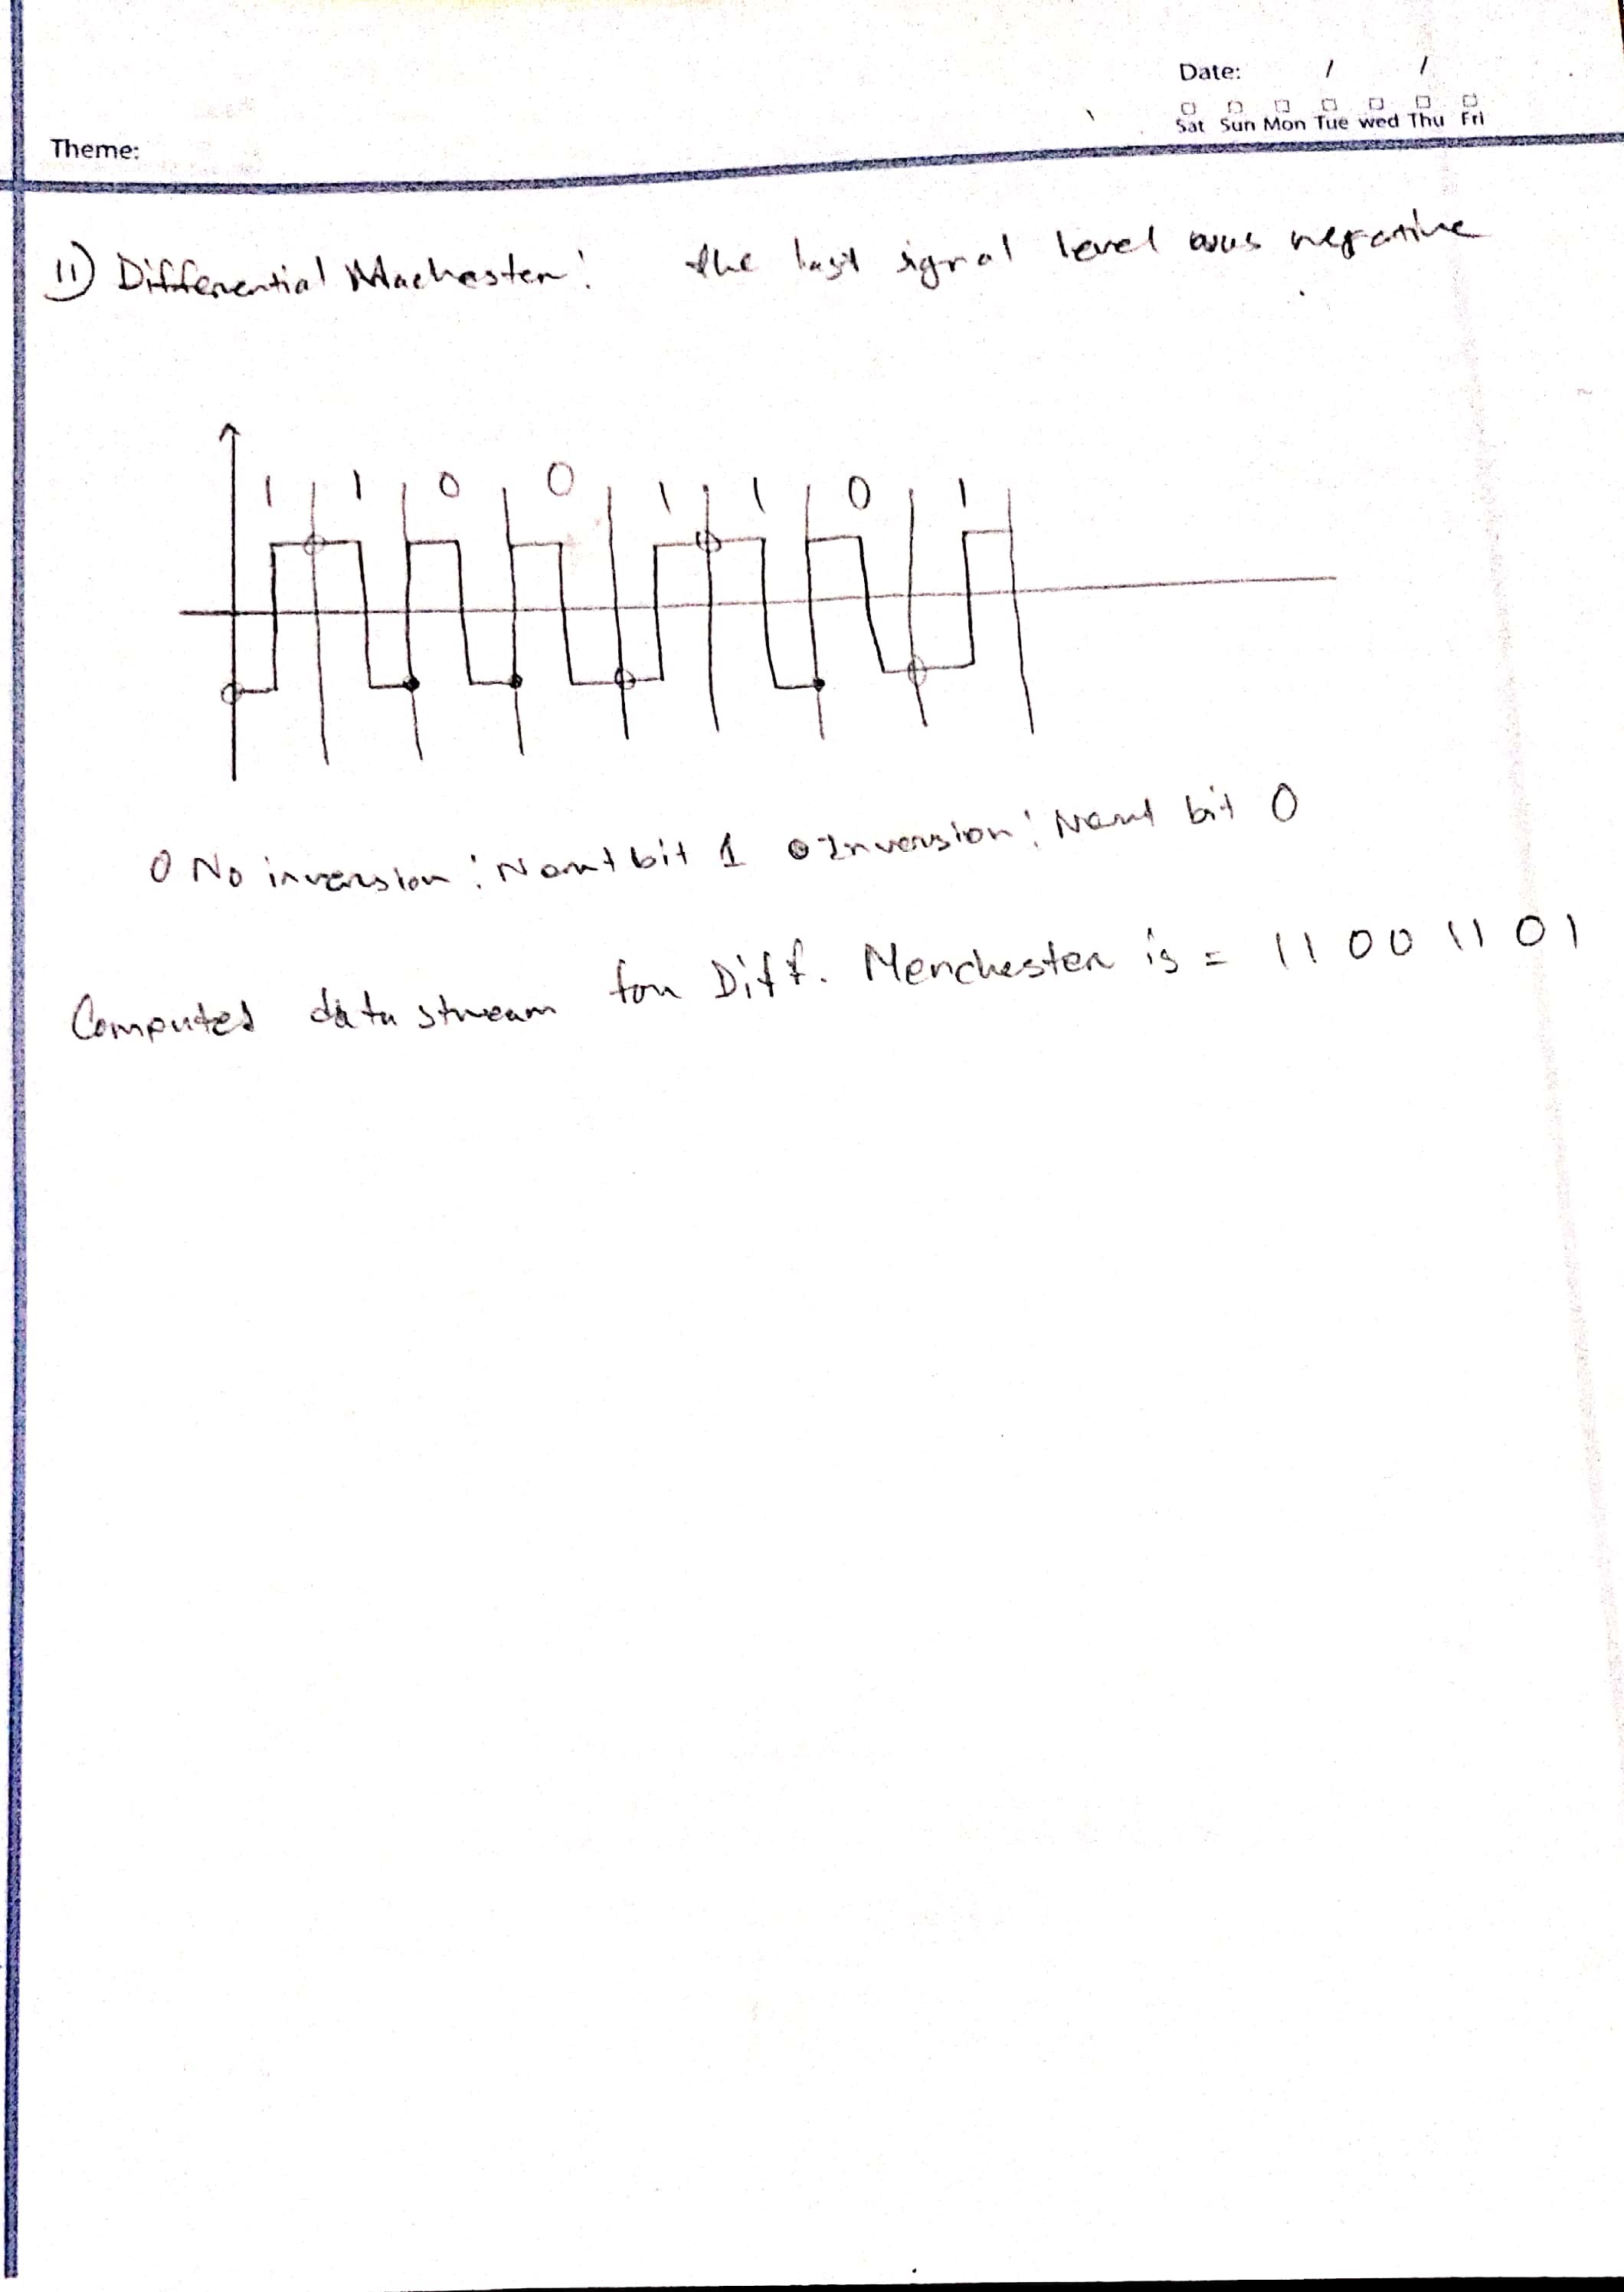 Date: / /
Sat Sun Mon Tue wed Thu Fri
Theme:
11) Differential Machester: the last signal level was negative
1 1 0 0 1 1 0 1
0 No inversion: Next bit 1 Inversion: Next bit 0
Computed data stream for Diff. Menchester is = 11001101